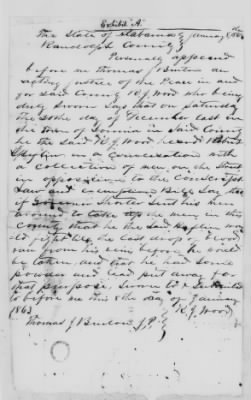 Exhibit "A"
The State of Alabama January 8th
Randolph County
Personaly appeard
before me Thomas J Burton an
acting Justice of the Peace in and
for said County R J Wood who being
duly sworn Says that on Saturday
the 20th day of December last in
the town of Louina in Said County
he the Said R J Wood heard Robert
in a Conversation with
a collection of men on the Street
in opposition to the Conscript
Law and exemption Bill Say that
if Governor Shorter Sent his men
around to take up the men in this
County that he the Said
would fight till the last drop of blood
ran from his veins before he would
be taken and that he had Some
powder and lead put away for
that purpose. Sworn to & Subscribed
to before me this 8th day of January
1863 R. J. Wood
Thomas J Burton J.P.